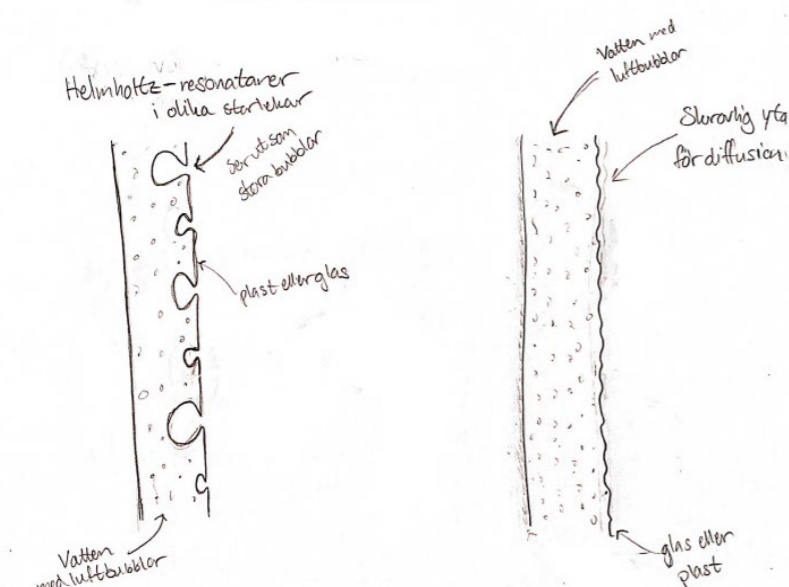 Helmholtz-resonatorer
i olika storlekar
ser ut som
stora bubblor
plast eller glas
Vatten
med luftbubblor
Vatten med
luftbubblor
Skrovlig yta
för diffusion
glas eller
plast